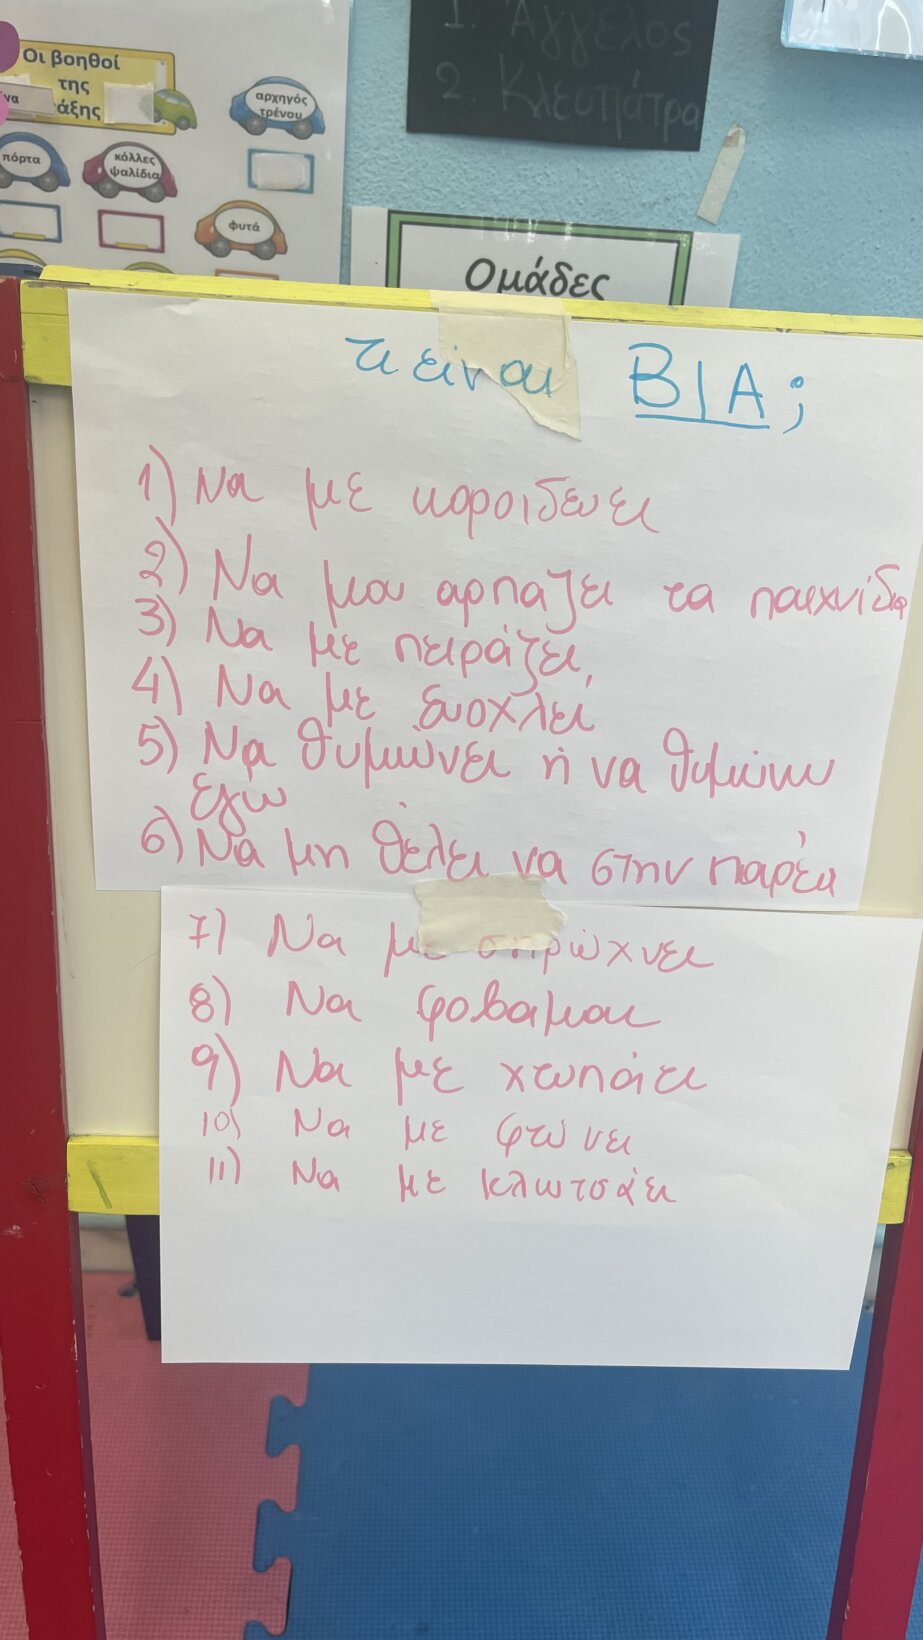 Οι βοηθοί
της
τάξης
να
αρχηγός
τρένου
πόρτα
κόλλες
ψαλίδια
φυτά
1. Άγγελος
2. Κλεοπάτρα
Ομάδες
τι είναι ΒΙΑ;
1) Να με κοροιδευει
2) Να μου αρπαζει τα παιχνίδια
3) Να με πειράζει
4) Να με ενοχλεί
5) Να θυμώνει ή να θυμώνω
εγώ
6) Να μη θέλει να στην παρέα
7) Να με σπρώχνει
8) Να φοβαμαι
9) Να με χτυπάει
10) Να με φτύνει
11) Να με κλωτσάει